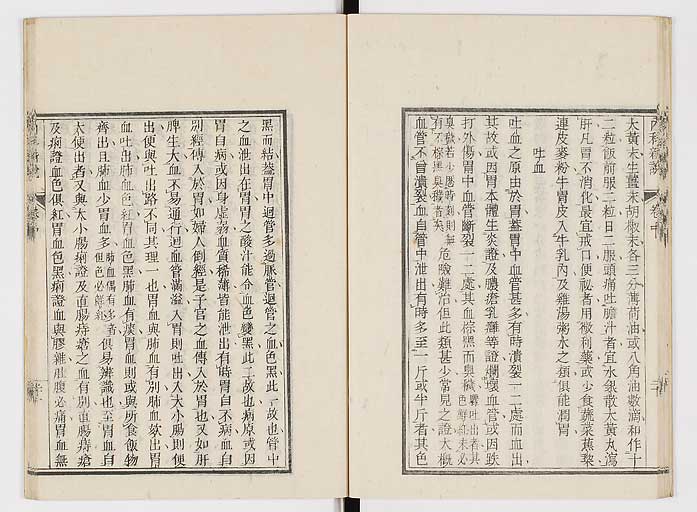 大黃末生薑末胡椒末各三分薄荷油或八角油數滴和作十
二粒飯前服二粒日二服頭痛吐膽汁者宜水銀散大黃丸瀉
肝凡胃不消化最宜戒口便祕者用微利藥或少食蔬菜蕉黎
連皮麥粉牛胃皮入牛乳內及雞湯粥水之類俱能潤胃
吐血
吐血之原由於胃蓋胃中血管甚多有時潰裂一二處而血出
其故或因胃本體生炎證及膿瘡乳癰等證爛壞血管或因跌
打外傷胃中血管斷裂一二處其血棕黑而與穢雜吐出者其色鮮紅未必
臭穢若少遲時刻則無有不棕黑臭穢者矣危險難治但此類甚少常見之證大概
血管不曾潰裂血自管中泄出有時多至一斤或半斤者其色
黑而結蓋胃中迴管多過脈管迴管之血色黑此一故也管中
之血泄出在胃胃之酸汁能令血色變黑此二故也病原或因
胃自病或因身虛弱血質稀薄皆能泄出有時胃自不病血自
別經傳入於胃如婦人倒經是子宮之血傳入於胃也又如肝
脾生大血不易通行迴血管滿溢入胃則吐出入大小腸則便
出便與吐出路不同其理一也胃血與肺血有別肺血欬出胃
血吐出肺血色紅胃血色黑肺血有淡胃血則或與所食飯物
齊出且肺血少胃血多肺血偶有多者但色必鮮紅俱易辨識也至胃血自
大便出者又與大小腸痢證及直腸痔瘡之血有別直腸痔瘡
及痢證血色俱紅胃血色黑痢證血與膠雜肚腹必痛胃血無